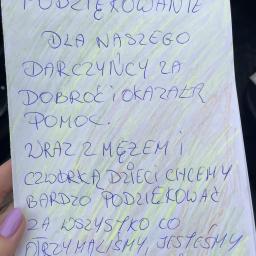 PODZIĘKOWANIE
DLA NASZEGO
DARCZYŃCY ZA
DOBROĆ I OKAZAŁĄ
POMOC.
WRAZ Z MĘŻEM I
CZWÓRKĄ DZIECI CHCEMY
BARDZO PODZIĘKOWAĆ
ZA WSZYSTKO CO
OTRZYMALIŚMY, JESTEŚMY